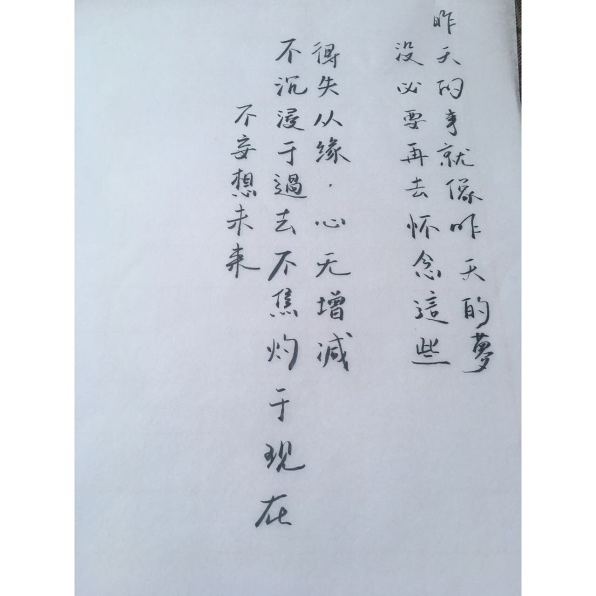 昨天的事就像昨天的夢
没必要再去怀念這些
得失从缘，心无增减
不沉浸于過去不焦灼于现在
不妄想未来